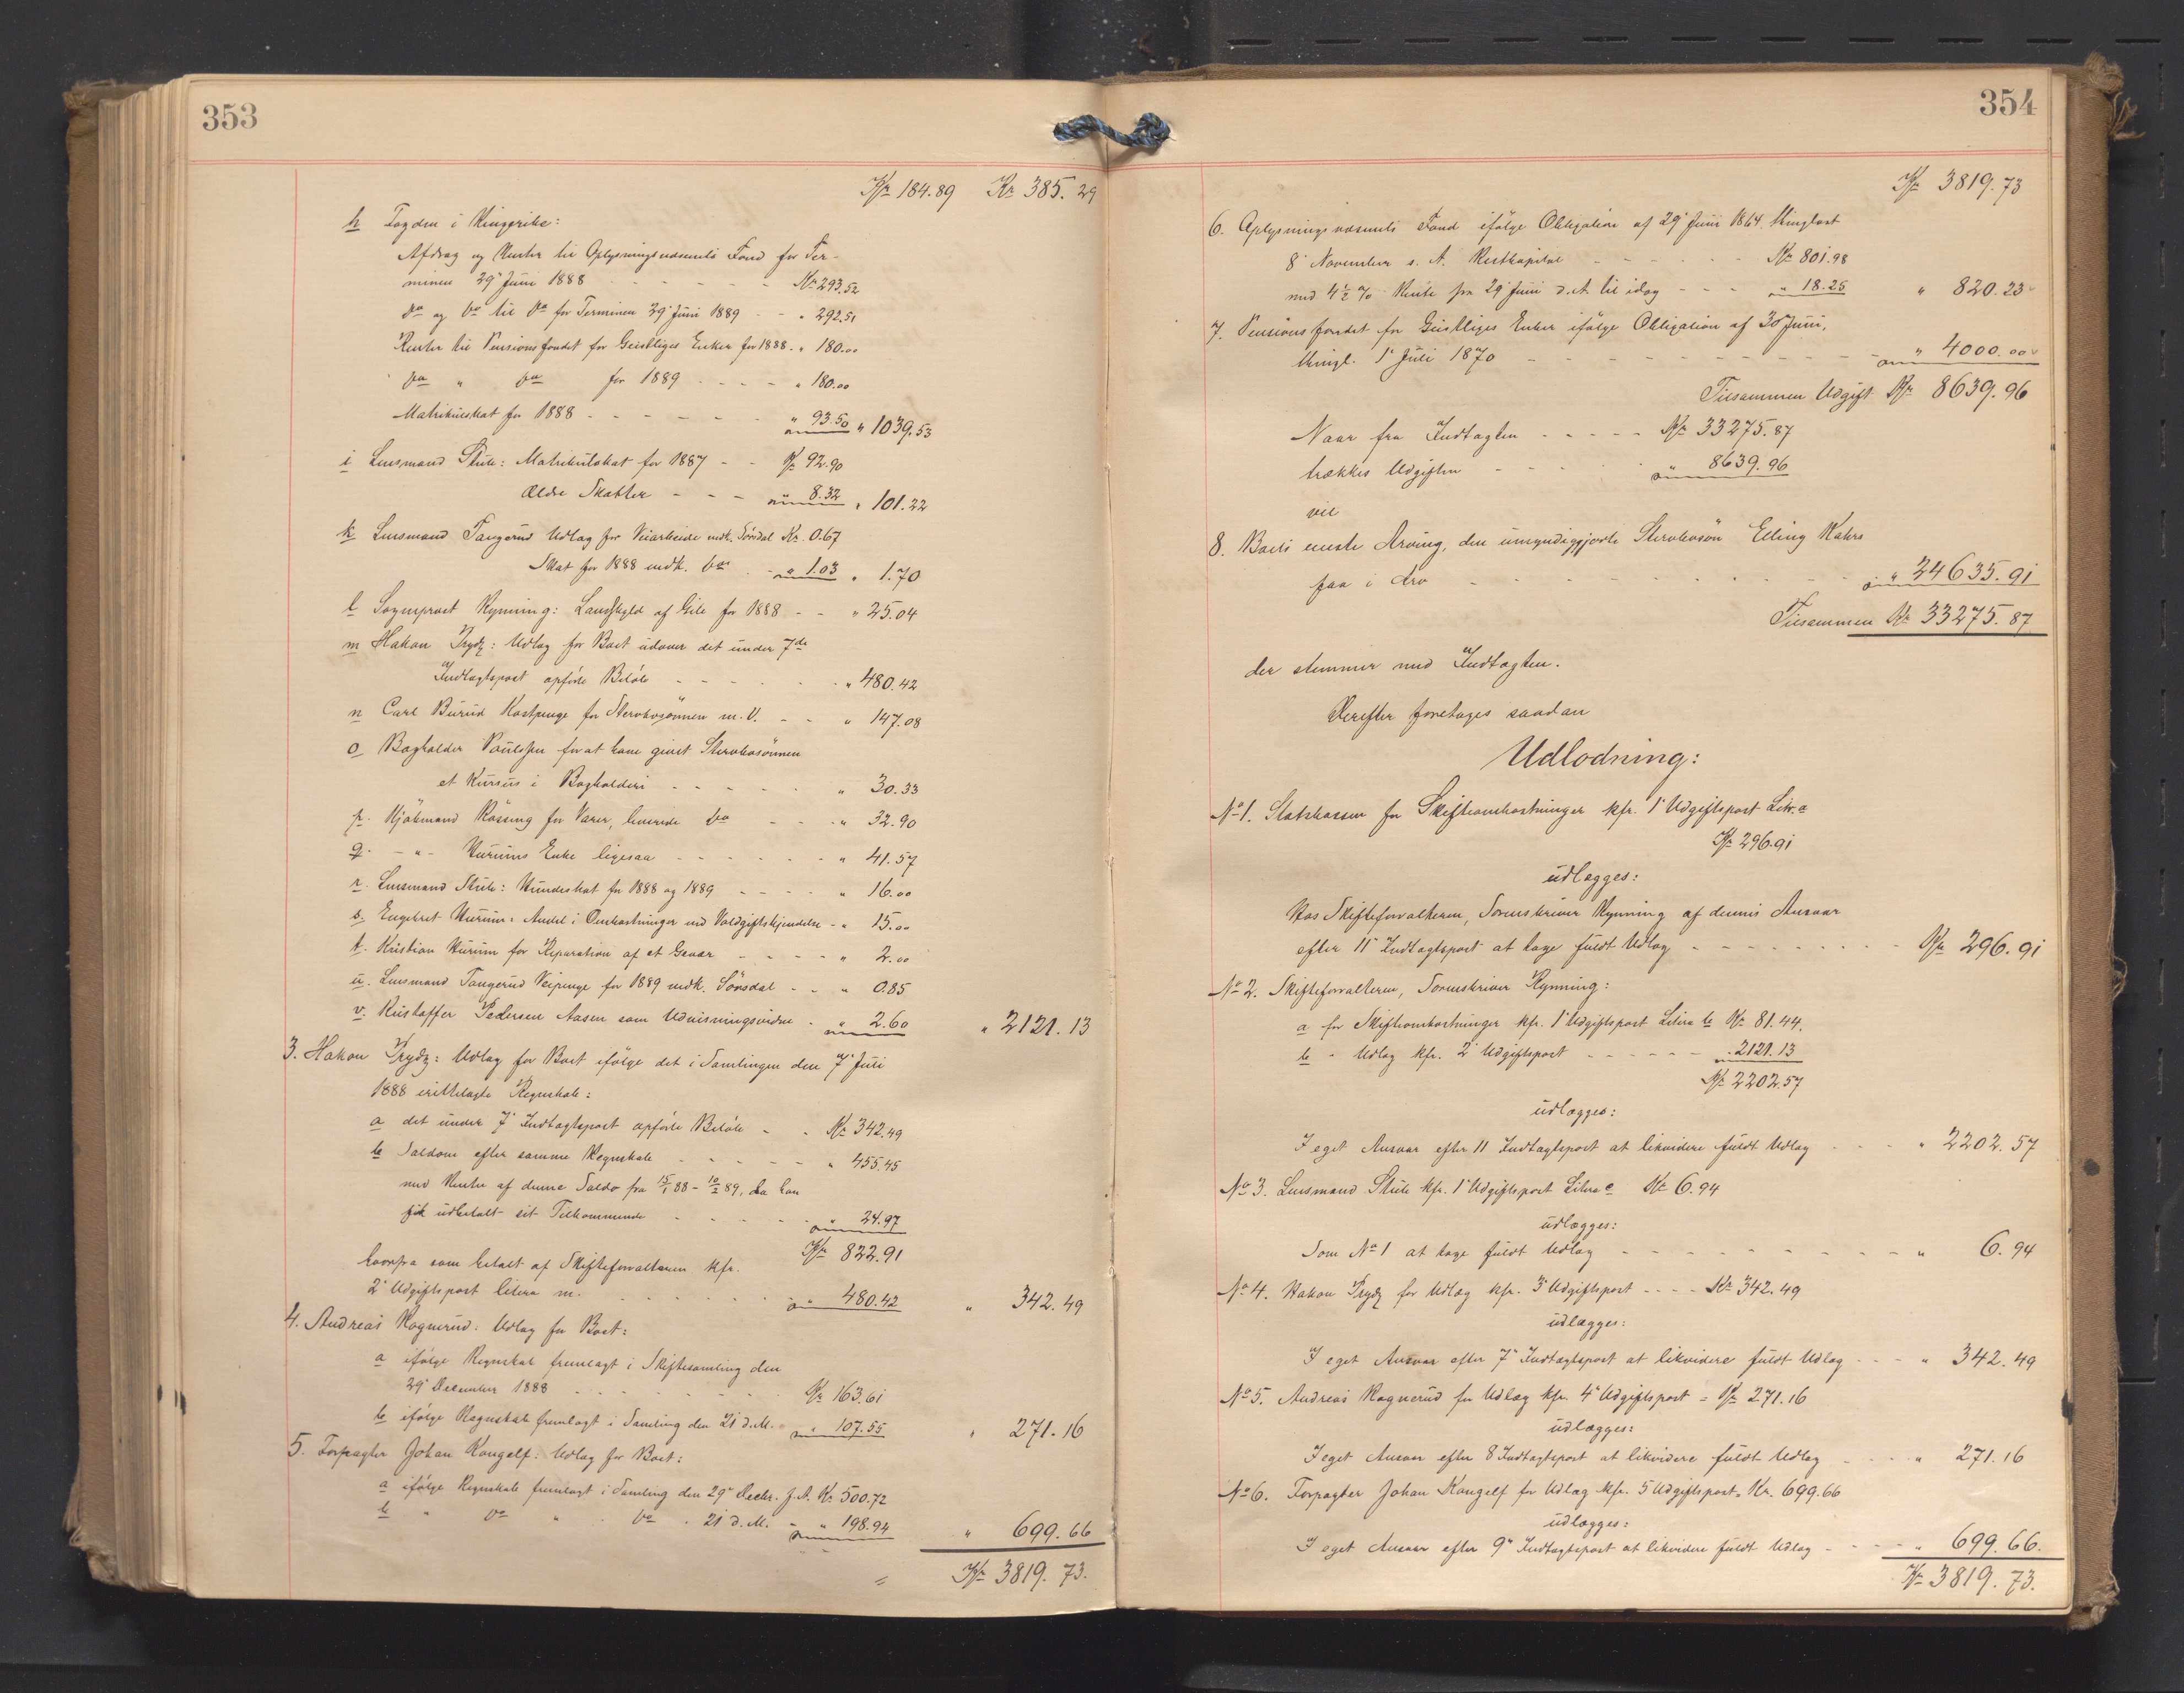 353
Kr 184.89 Kr 385.29
h Fogden i Ringerike:
Afdrag og Renter til Oplysningsvæsenets Fond for Ter-
minen 29' Juni 1888 - - - - Kr 293.52
do og do til do for Terminen 29' Juni 1889 - - " 292.51
Renter til Pensionsfondet for Geistliges Enker for 1888 - " 180.00
do " do for 1889 - - - - " 180.00
Matrikulskat for 1888 - - - - - " 93.50 " 1039.53
i Lensmand Stub: Matrikulskat for 1887 - - Kr 92.90
ældre Skatter - - - " 8.32 " 101.22
k Lensmand Tangerud Udlag for Veiarbeide vedk. Sørsdal Kr. 0.67
Skat for 1888 vedk. do - " 1.03 " 1.70
l Sogneprest Rynning: Landskyld af Gile for 1888 - - " 25.04
m Hakon Prydz: Udlag for Boet udover det under 7de
Indtægtspost opførte Beløb - - - - " 480.42
n Carl Burud Kostpenge for Stervbosønnen m. V. - - " 147.08
o Bogholder Paulssen for at have givet Stervbosønnen
et Kursus i Bogholderi - - - - - " 30.33
p. Kjøbmand Røssing for Varer, leverede do - - - " 32.90
q. - " - Hurums Enke ligesaa - - - - - " 41.57
r. Lensmand Stub: Hundeskat for 1888 og 1889 - - - - " 16.00
s. Engebret Hurum: Andel i Omkostninger ved Voldgiftskjendelse - " 15.00
t. Kristian Hurum for Reparation af et Gevær - - - - " 2.00
u. Lensmand Tangerud Veipenge for 1889 vedk. Sørsdal - - " 0.85
v. Kristoffer Pedersen Aasen som Udvisningsvidne - " 2.60 " 2121.13
3. Hakon Prydz: Udlag for Boet ifølge det i Samlingen den 7' Juli
1888 irettelagte Regnskab:
a det under 7' Indtægtspost opførte Beløb - - Kr 342.49
b Saldoen efter samme Regnskab - - - - - " 455.45
med Renter af denne Saldo fra 15/1 88 - 10/2 89, da han
fik udbetalt sit Tilkommende - - - - " 24.97
Kr 822.91
hvorfra som betalt af Skifteforvalteren kfr.
2' Udgiftspost litera m. - - - - - " 480.42 " 342.49
4. Andreas Rognerud. Udlag for Boet:
a ifølge Regnskab fremlagt i Skiftesamling den
29' December 1888 - - - - - - Kr 163.61
b ifølge Regnskab fremlagt i Samling den 21 d.M. " 107.55 " 271.16
5. Forpagter Johan Kongelf: Udlag for Boet:
a ifølge Regnskab fremlagt i Samling den 29' Decbr. f.A. Kr 500.72
b " do " do " 21 d.M. - " 198.94 " 699.66
Kr 3819.73.
354
Kr 3819.73
6. Oplysningsvæsenets Fond ifølge Obligation af 29' Juni 1864 thinglæst
8' November s. A. Restkapital - - - - - Kr 801.98
med 4½ % Rente fra 29' Juni d.A. til idag - - - " 18.25 " 820.23
7. Pensionsfondet for Geistliges Enker ifølge Obligation af 30' Juni,
thingl. 1' Juli 1870 - - - - - - - - - - " 4000.00
Tilsammen Udgift Kr 8639.96
Naar fra Indtægten - - - - - Kr 33275.87
trækkes Udgiften - - - - " 8639.96
vil
8. Boets eneste Arving, den umyndiggjorte Stervbosøn Elling Wahrs
faa i Arv - - - - - - - - " 24635.91
Tilsammen Kr 33275.87
der stemmer med Indtægten.
Derefter foretages saadan
Udlodning:
No 1. Statskassen for Skifteomkostninger kfr. 1' Udgiftspost Litr. a
Kr 296.91
udlægges:
Hos Skifteforvalteren, Sorenskriver Rynning af dennes Ansvar
efter 11' Indtægtspost at tage fuldt Udlæg - - - - - - - - Kr 296.91
No 2. Skifteforvalteren, Sorenskriver Rynning:
a for Skifteomkostninger kfr. 1' Udgiftspost Litera b Kr 81.44.
b " Udlæg kfr. 2' Udgiftspost - - - - - - " 2121.13
Kr 2202.57
udlægges:
I eget Ansvar efter 11 Indtægtspost at likvidere fuldt Udlæg - - - " 2202.57
No 3. Lensmand Stub kfr. 1' Udgiftspost Litra c Kr 6.94
udlægges:
Som No 1 at tage fuldt Udlæg - - - - - - - - - - " 6.94
No 4. Hakon Prydz for Udlæg kfr. 3' Udgiftspost - - - - Kr 342.49
udlægges:
I eget Ansvar efter 7' Indtægtspost at likvidere fuldt Udlæg - - - " 342.49
No 5. Andreas Rognerud for Udlæg kfr. 4' Udgiftspost = Kr 271.16
udlægges:
I eget Ansvar efter 8 Indtægtspost at likvidere fuldt Udlæg - - - " 271.16
No 6. Forpagter Johan Kongelf for Udlæg kfr. 5 Udgiftspost = Kr. 699.66
udlægges:
I eget Ansvar efter 9' Indtægtspost at likvidere fuldt Udlæg - - - " 699.66.
Kr 3819.73.